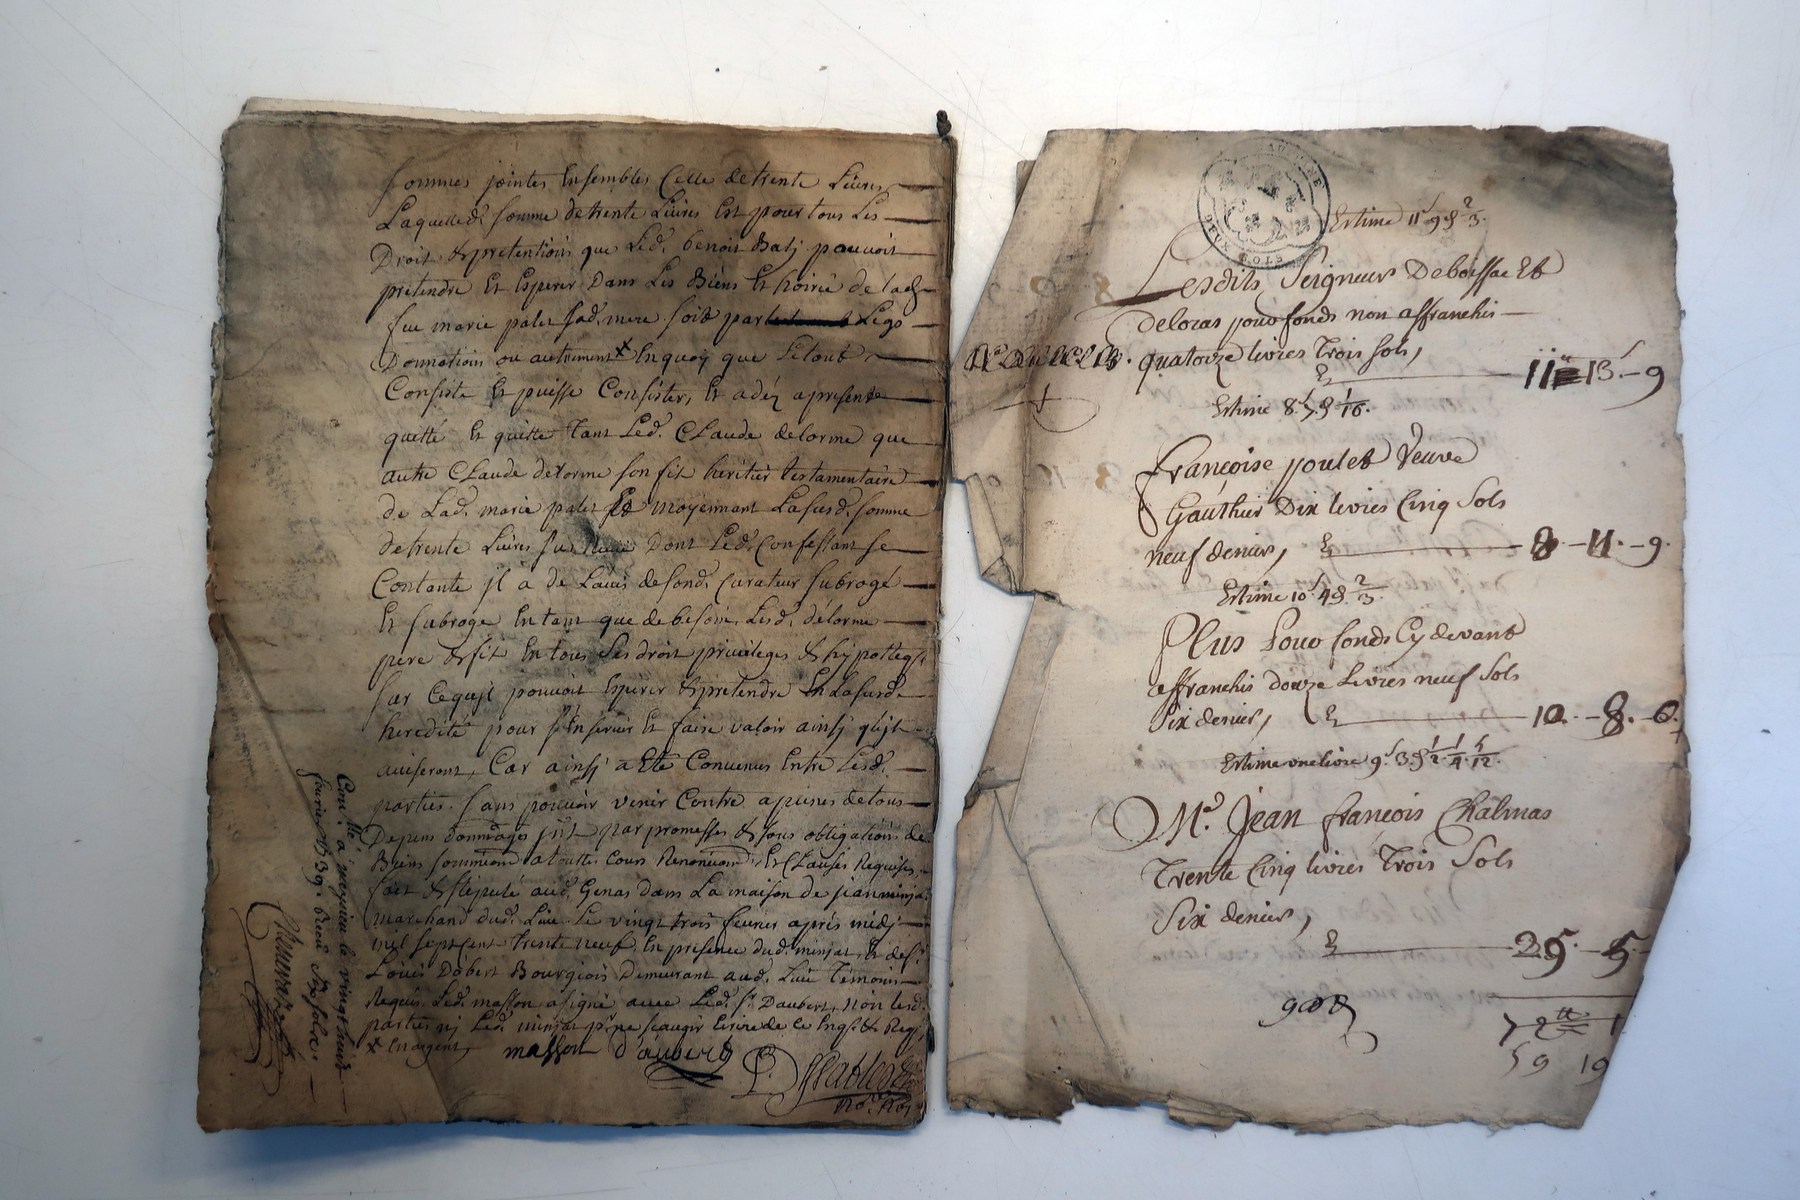 sommes jointes Ensembles Celle de trente Livres
Laquelle d. somme de trente Livres Est pour tous Les
Droit & pretentions que Led. benoit Balj pouvoit
pretendre Et Esperer Dans Les Biens Et hoirie de lad.
feu marie palet sad. mere soit par Legs
Donnations ou autrement x Enquoy que Letout
Consiste Et puisse Consister, Et a déz apresent
quitté Et quitte tant Led. Claude delorme que
autre Claude delorme son fil heritier testamentaire
de Lad. marie palet moyennant Lasusd. somme
de trente Livres Dont Led. Confessant se
Contante il a de L'avis desond. Curateur subrogé
Et subroge Entant que de besoin, Lesd. délorme
pere & fil En tous Ses droit privileges & hypotteq.
sur Cequjl pouvoit Esperer & pretendre En Lasusd.
heredité pour s'En servir Et faire valoir ainsj qujl
aviseront, Car ainsj a Eté Convenus Entre Lesd.
parties. sans pouvoir venir Contre apeines de tous
Depens dommages par promesses & sous obligations de
Biens a toutte Cours Et Clauses Requises
fait & stipulé aud. Genas dans La maison de jean minjat
marchand dud. Lieu Le vingt trois fevrier aprés midj
mil sept cent trente neuf En presence dud. minjat, & de s.
Louis Dobert Bourgeois Demeurant aud. Lieu Témoins
Requis Led. masson a signé avec Led. s. Daubert, non lesd.
parties nj Led. minjat p. ne sçavoir Ecrire de ce Enq. & Req.
x En argent, masson d'aubert
Con. a meyzieu le vingt huit
fevrier 1739. Recu Six sols
DEUX SOLS
Estime 11 9 8 2/3.
Lesdits Seigneurs Deboissac Et
deloras pour fonds non affranchis
quatorze livres Trois sols,
11 13. - 9
Estime 8. 5. 8 1/16.
Françoise poulet Veuve
Gauthier Dix livres Cinq Sols
neuf deniers, 8 - 11. - 9.
Estime 10 4 8 2/3.
Plus Pour fonds Cy devant
affranchis douze Livres neuf Sols
Six deniers, 10. - 8. - 6.
Estime une livre 9 3 8 1/2 1/4 1/12.
M.e Jean françois Chalmas
Trente Cinq livres Trois Sols
Six deniers,
29 - 5 -
72 1
59 19